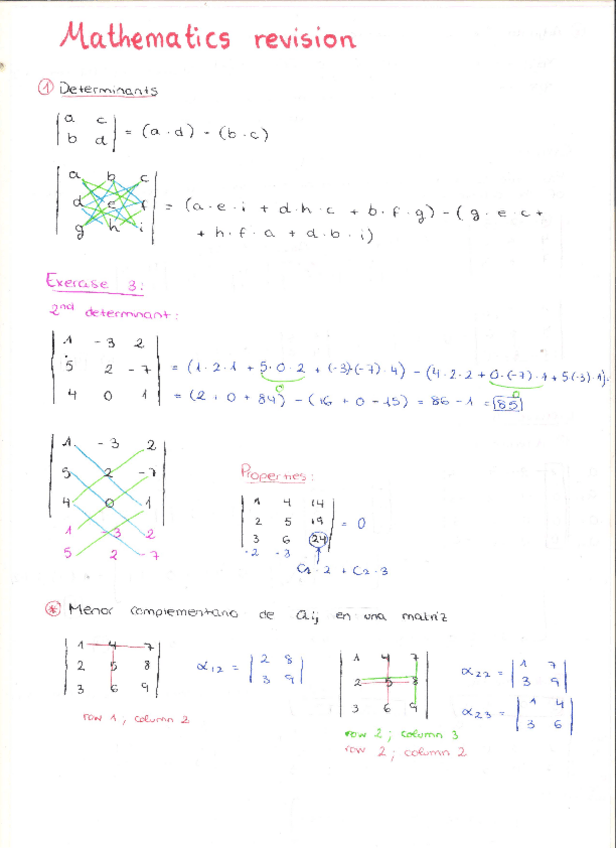 Mathematics revision
① Determinants
|a c|
|b d| = (a·d) - (b·c)
|a b c|
|d e f| = (a·e·i + d·h·c + b·f·g) - (g·e·c +
|g h i| + h·f·a + d·b·i)
Exercise 3:
2nd determinant:
|1 -3 2|
|5 2 -7| = (1·2·1 + 5·0·2 + (-3)·(-7)·4) - (4·2·2 + 0·(-7)·1 + 5(-3)·1).
0 0
|4 0 1| = (2 + 0 + 84) - (16 + 0 - 15) = 86 - 1 = 85
|1 -3 2|
|5 2 -7|
|4 0 1|
1 -3 2
5 2 -7
Properties:
|1 4 14|
|2 5 19| = 0
|3 6 24|
·2 ·3
C1·2 + C2·3
* Menor complementario de aij en una matriz
|1 4 7|
|2 5 8|
|3 6 9|
α12 = |2 8|
|3 9|
row 1, column 2
|1 4 7|
|2 5 8|
|3 6 9|
α22 = |1 7|
|3 9|
α23 = |1 4|
|3 6|
row 2; column 3
row 2; column 2